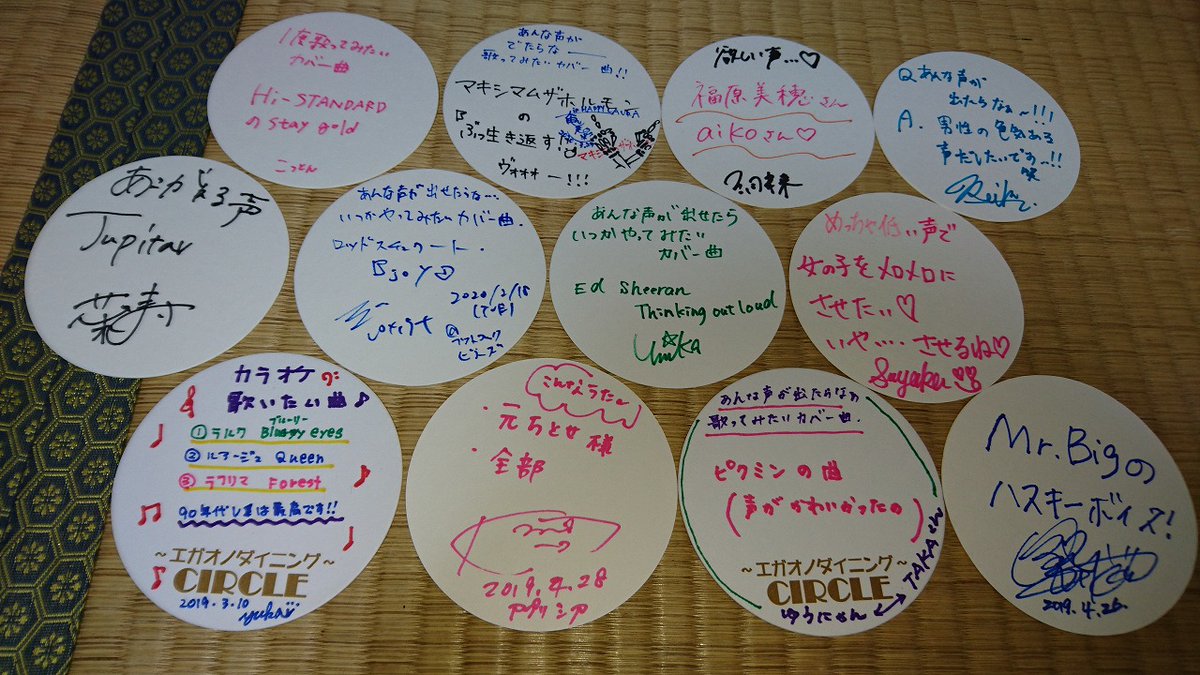 1度歌ってみたい
カバー曲
Hi-STANDARD
の stay gold
こっとん
あんな声が
でたらな
歌ってみたいカバー曲!!
マキシマムザホルモン
の
『ぶっ生き返す!!』
ヴォォォー!!!
欲しい声…♡
福原美穂さん
aikoさん♡
Q あんな声が
出たらなぁ〜!!!
A. 男性の色気ある
声だしたいです…!!
笑
あこがれる声
Jupiter
あんな声が出せたらな…
いつかやってみたいカバー曲.
ロッドスチュワート.
2020/2/18
あんな声が出せたら
いつかやってみたい
カバー曲
Ed Sheeran
Thinking out loud
めっちゃ低い声で
女の子をメロメロに
させたい♡
いや…. させるね♡
Sayaka
カラオケの
歌いたい曲♪
① ラルク Blurry eyes
ブルーリー
② ルアージュ Queen
③ ラクリマ Forest
90年代しまは最高です!!
〜エガオノダイニング〜
CIRCLE
2019.3.10
こんなうたを
・元ちとせ様
・全部
2019.4.28
あんな声が出たらなの
歌ってみたいカバー曲.
ピクミンの曲
(声がかわいかったの)
〜エガオノダイニング〜
CIRCLE
ゆうにゃん ↔ TAKAさん
Mr.Bigの
ハスキーボイス!
2019.4.26.